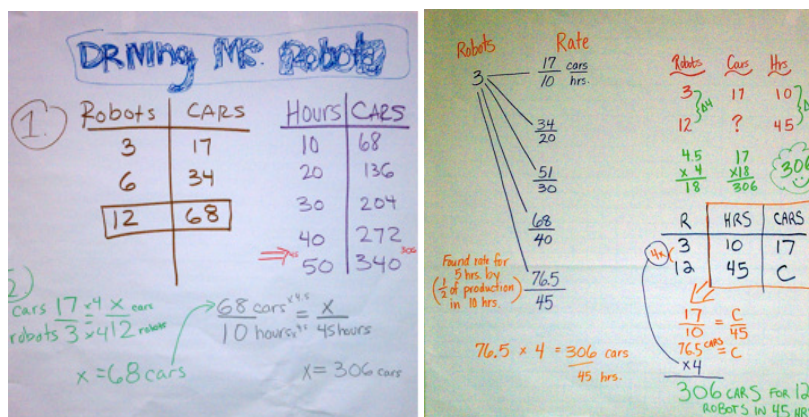 DRIVING MS. ROBOTO
1.
Robots CARS
3 17
6 34
12 68
Hours CARS
10 68
20 136
30 204
40 272
45 306
50 340
2)
cars 17 x4 = x cars
robots 3 x4 12 robots
x = 68 cars
68 cars x4.5 = x
10 hours x4.5 45 hours
x = 306 cars
Robots Rate
3
17 cars
10 hrs.
34
20
51
30
68
40
76.5
45
Found rate for
5 hrs. by
(1/2 of production
in 10 hrs.)
76.5 x 4 = 306 cars
45 hrs.
Robots Cars Hrs
3 17 10
12 ? 45
4.5 17
x 4 x18
18 306
306
R HRS CARS
3 10 17
4x
12 45 C
17 = C
10 45
76.5 CARS = C
x4
306 CARS FOR 12
ROBOTS IN 45 HR